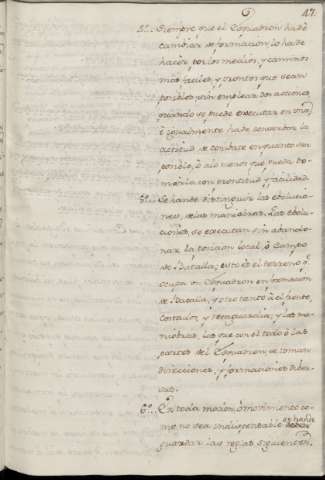 47.
5º... Siempre que el Esquadron ha de
cambiar de formacion, lo ha de
hacer por los medios, y caminos
mas faciles, y prontos que sean
posibles, sin emplear dos acciones
quando se puede executar en una,
è igualmente ha de conserbar la
actitud de combate en quanto sea
posible, ò alo menos que pueda to-
marla con prontitud, y facilidad
Se hande distinguir las eboluciones
nes, delas maniobras. Las ebolu-
ciones, se executan sin abando-
nar la posicion local, ò Campo
de Batalla; esto es el terreno q.e
ocupa un Esquadron en formacion
de Batalla, y otro tanto à el frente,
costados, y retaguardia; y las ma-
niobras, las que con el todo ò las
partes del Esquadron, se toman
direcciones, y formaciones diber-
sas.
6º... En toda mocion, ò movimiento co-
mo no sea indispensable
guardar las reglas siguientes.